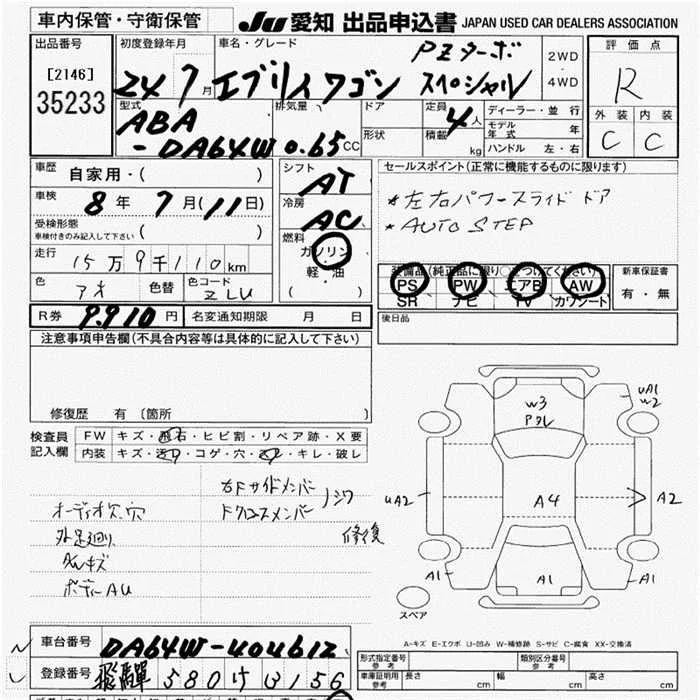 車内保管・守衛保管 JU 愛知 出品申込書 JAPAN USED CAR DEALERS ASSOCIATION
出品番号 [2146] 35233
初度登録年月 24 7月
車名・グレード エブリィワゴン PZターボ スペシャル
2WD・4WD
評価点 R
外装 C 内装 C
型式 ABA-DA64W
排気量 0.65 CC
ドア 形状
定員 4人 積載 kg
ディーラー・並行
モデル年式 年
ハンドル 左・右
車歴 自家用・( )
車検 8年 7月(11日)
受検形態 ( )
車検付きのみ記入して下さい
走行 15万9千110km
色 アオ 色替 色コード ZLU
シフト AT
冷房 AC
燃料 ガソリン
軽・油
( )
セールスポイント(正常に機能するものに限ります)
*左右パワースライドドア
*AUTO STEP
装備品(純正品に限り○をつけてください)
PS PW エアB AW
SR ナビ TV カワシート
新車保証書 有・無
R券 9,910円 名変通知期限 月 日
後日品
注意事項申告欄(不具合内容等は具体的に記入して下さい)
修復歴 有〔箇所 〕
検査員記入欄 FW キズ・飛石・ヒビ割・リペア跡・X要
内装 キズ・汚れ・コゲ・穴・・キレ・破レ
オーディオ欠.穴
外足廻り
ボディーAU
右Fサイドメンバー
Fクロスメンバー
シワ
修復
W3
UA1
W2
UA2
A4
A2
A1
A1
A1
スペア
A-キズ E-エクボ U-凹み W-補修跡 S-サビ C-腐食 XX-交換済
車台番号 DA64W-404612
登録番号 飛騨 580 す 3156
形式指定番号 参考
類別区分番号 参考
車庫証明用 参考 長さ cm 幅 cm 高さ cm